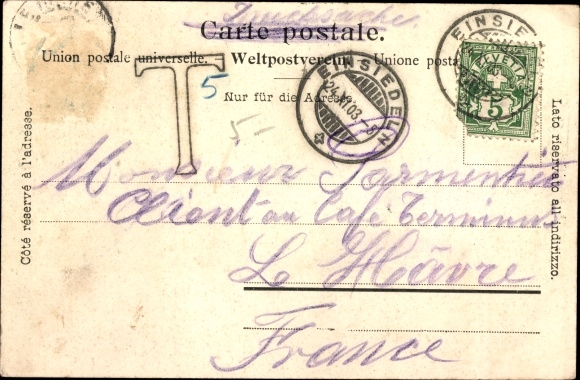 Carte postale.
Union postale universelle. Weltpostverein. Unione posta
Nur für die Adresse.
T
5
5-
EINSIEDELN
24.XI.03.-8
EINSIE
HELVETIA
5
Côté réservé à l'adresse.
Lato riservato all'indirizzo.
Monsieur Sarmentier
Client au Café Terminus
Le Hâvre
France